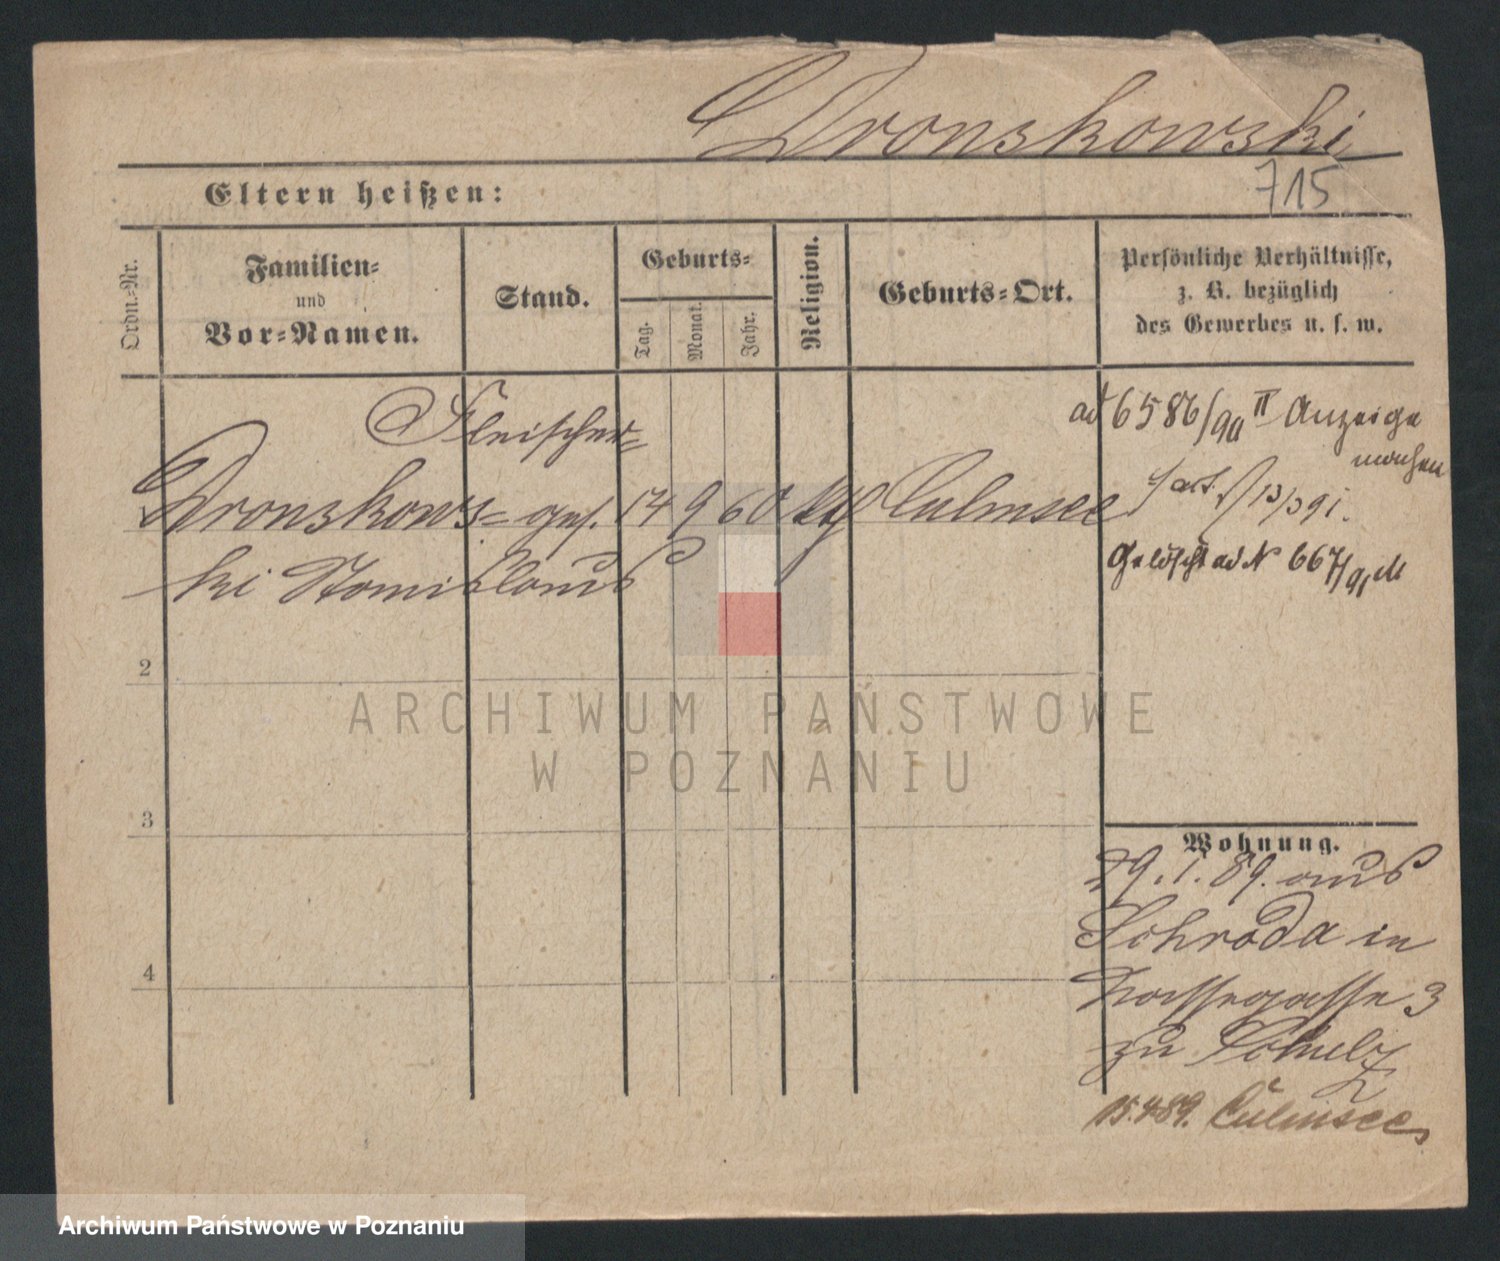 Dronskowski
715
Eltern heißen:
Ordn.-Nr.
Familien=
und
Vor=Namen.
Stand.
Geburts=
Tag.
Monat.
Jahr.
Religion.
Geburts=Ort.
Persönliche Verhältnisse,
z. B. bezüglich
des Gewerbes u. s. w.
Fleischer=
Dronskows= ges. 14 9 60 kth Culmsee
ki Stanislaus
ad 6586/90 II Anzeige
machen
13/3 91.
Gelöscht ad N 667/91 M
2
3
4
Wohnung.
29.1.89. aus
Schroda in
3
zu Schulz
15.4.89. Culmsee
ARCHIWUM PAŃSTWOWE
W POZNANIU
Archiwum Państwowe w Poznaniu